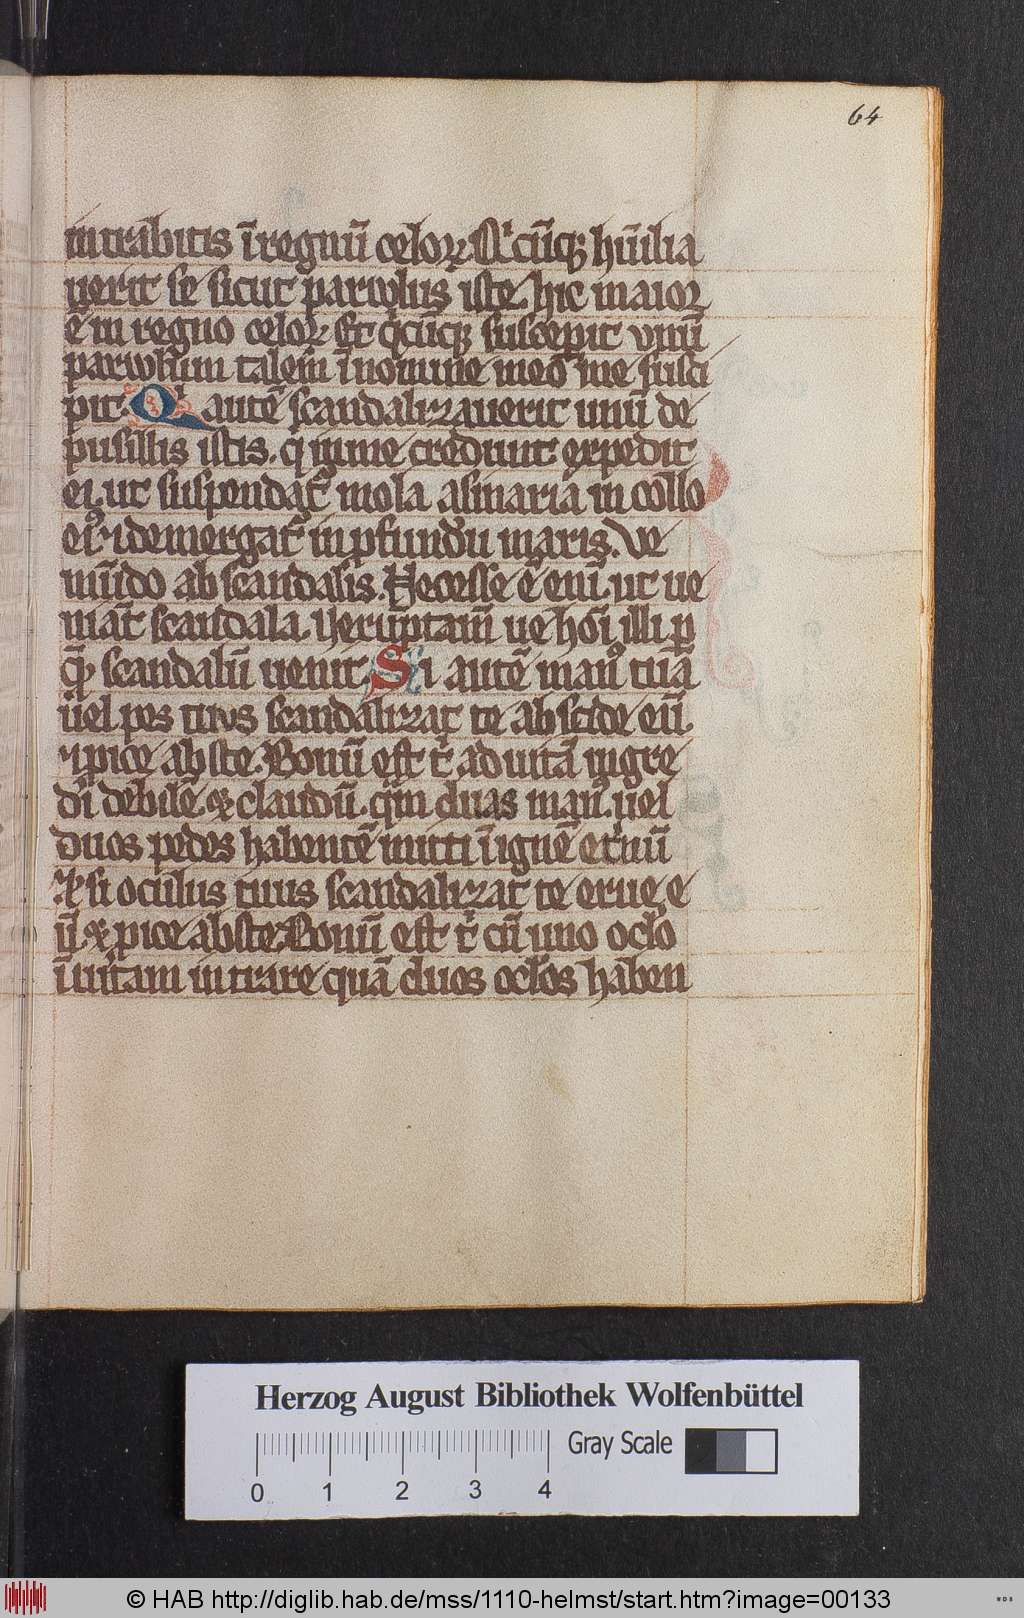 64
intrabitis ī regnū celoꝝ Qͥcūqꝫ hūilia
uerit se sicut paruulus iste hic maior
ē in regno celoꝝ Et qͥcūqꝫ susceperit vnū
paruulum talem̄ ī nomine meo me susci
pit. Qͥ autē scandalizauerit unū de
pusillis istis. q̄ in me credunt expedit
ei. ut suspendat᷑ mola asinaria in collo
eiꝰ ⁊ demergat᷑ in ꝓfundū maris. Ve
mūdo ab scandalis. Necesse ē eni᷑. ut ue
niāt scandala. Veruptam̄ ue hōi illi ꝑ
quē scandalū uenit. Si autē manꝰ tua
uel pes tuus scandalizat te abscide eū.
⁊ ꝓice abs te. Bonū est t͛ ad uitā ingre
di debilē. ⁊ claudū. qͣm duas manꝰ. uel
duos pedes habentē mitti ī ignē et͛nū
Et si oculus tuus scandalizat te erue e
ū. ⁊ ꝓice abs te Bonū est t͛ cū uno oclo
ī uitam intrare quā duos oclos haben
Herzog August Bibliothek Wolfenbüttel
Gray Scale
0 1 2 3 4
© HAB http://diglib.hab.de/mss/1110-helmst/start.htm?image=00133